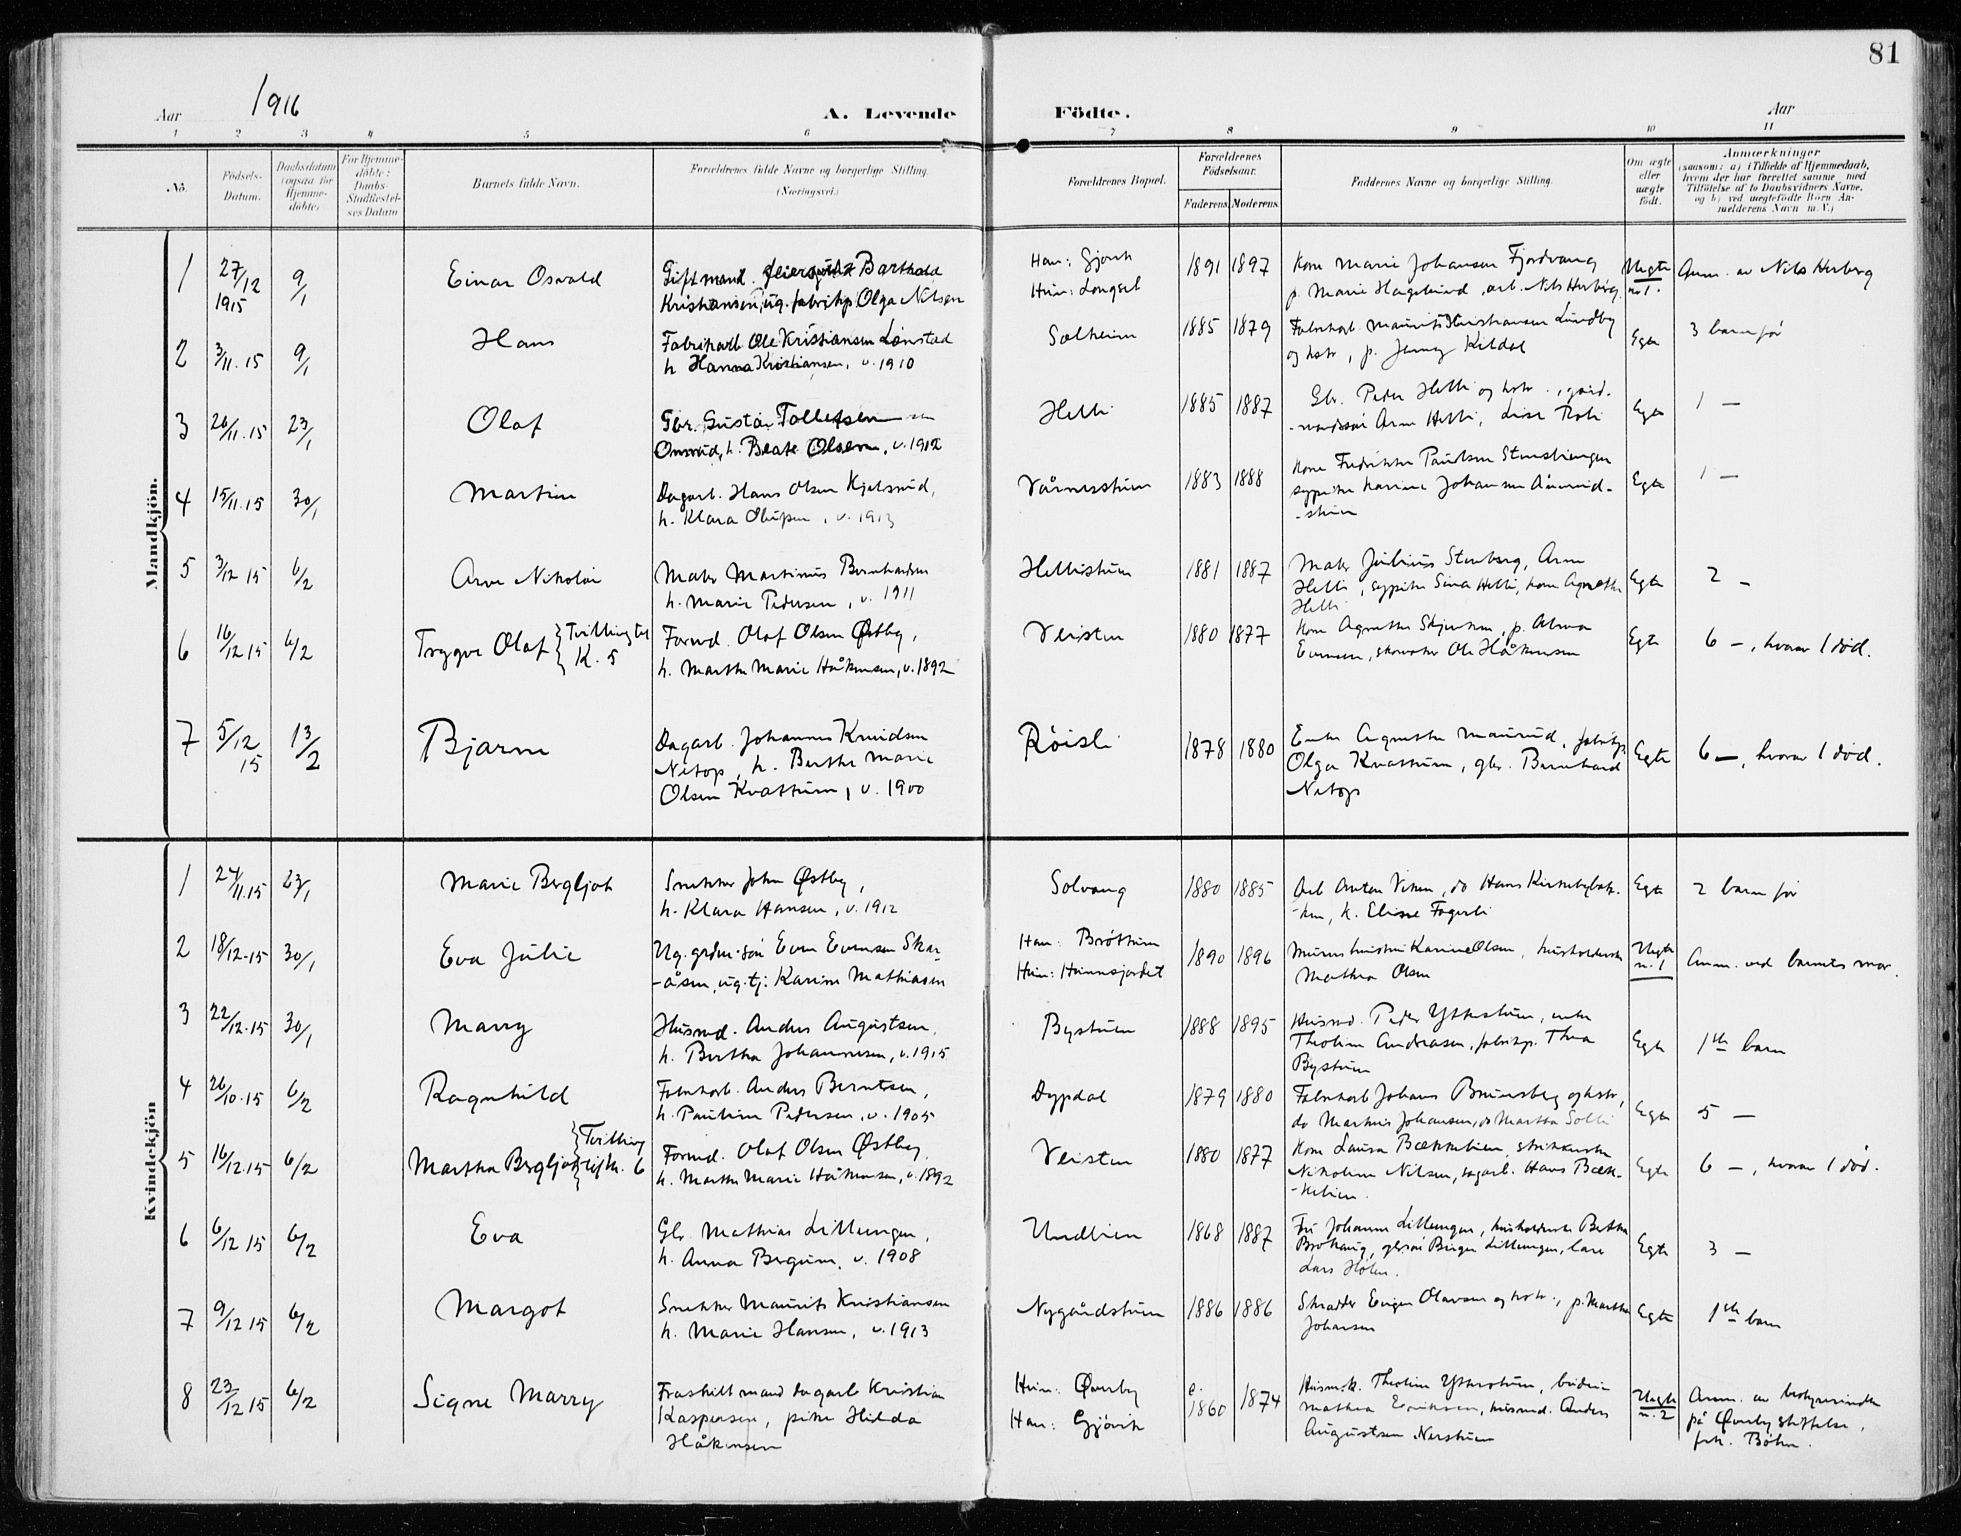 81
Aar 1916 A. Levende Födte. Aar
1 2 3 4 5 6 7 8 9 10 11
No. Födsels-Datum. Daabsdatum (ogsaa for Hjemme-döbte) For Hjemme-döbte: Daabs-Stadfæstel-ses Datum Barnets fulde Navn. Forældrenes fulde Navne og borgerlige Stilling. (Næringsvei.) Forældrenes Bopæl. Forældrenes Födselsaar. Faderens Moderens Faddernes Navne og borgerlige Stilling. Om ægte eller uægte födt. Anmærkninger (saasom: a) i Tilfælde af Hjemmedaab, hvem der har forrettet samme med Tilföielse af to Daabsvidners Navne, og b) ved uægtefödte Börn An-melderens Navn m. V.)
Mandkjön.
1 27/12 1915 9/1 Einar Osvald Gift mand Barthold
Kristiansen, ug. fabrikp. Olga Nilsen
Han: Gjøvik
Hun: Longset
1891 1897 Kone Marie Johansen Fjordvang
p. Marie Hagelund, arb. Nils Herberg
Uegte nr 1. Anm. av Nils Herberg
2 3/11.15 9/1 Hans Fabrikarb Ole Kristiansen Lønstad
h Hanna Kristiansen, v. 1910
Solheim 1885 1879 Fabrikarb. Maurits Kristiansen Lundby
og hstr, p. Jenny Kildal
Egte 3 barn før
3 26/11.15 23/1 Olaf Gbr. Gustav Tollefsen
h. Beate Olsen, v. 1912
Helli 1885 1887 Gbr. Peder Helli og hstr., gaard-
Arne Helli, Lise
Egte 1 —
4 15/11.15 30/1 Martin Dagarb. Hans Olsen Kjelsrud,
h. Klara Olufsen, v. 1913
1883 1888 Kone Fredrikke Paulsen
sypike Karine Johansen
Egte 1 —
5 3/12 15 6/2 Arne Nikolai Maler Martinus Bernhardsen
h. Marie Pedersen, v. 1911
Hellistuen 1881 1887 Maler Julius Stenberg, Arne
Helli, sypike Sina Helli, kone Agnethe
Helli
Egte 2 —
6 16/12 15 6/2 Trygve Olaf Tvilling til
K. 5
Formd. Olaf Olsen Østby,
h. Marthe Marie Håkensen, v. 1892
Veisten 1880 1877 Kone Agnethe, p. Alma
Evensen, skomaker Ole Håkensen
Egte 6 —, hvorav 1 død.
7 5/12 15 13/2 Bjarne Dagarb. Johannes Knudsen
Netop, h. Berthe Marie
Olsen Kvattum, v. 1900
Røisli 1878 1880 Enke Agnethe Maurud, fabrikp.
Olga Kvattum, gbr. Bernhard
Netop
Egte 6 —, hvorav 1 død.
Kvindekjön
1 24/11.15 23/1 Marie Bergljot Snekker John Østby,
h. Klara Hansen, v. 1912
Solvang 1880 1885 Arb Anton Viken, do Hans Kirkebybak-
-ken, k. Elise Fagerli
Egte 2 barn før
2 18/12.15 30/1 Eva Julie Ug. grdm.søn Even Evensen Skar-
-åsen, ug. tj: Karine Mathiasen
Han: Brøttum
Hun: Hunnsjordet
1890 1896 Murers hustru Karine Olsen, husholderske
Mathea Olsen
Uegte n. 1 Anm. ved barnets mor.
3 22/12.15 30/1 Marry Husmd. Anders Augustsen,
h. Bertha Johannesen, v. 1915
Bystuen 1888 1895 Husmd. Peder Ytterstuen, enke
Theoline Andreasen, fabrikp. Thea
Bystuen
Egte 1ste barn
4 26/10.15 6/2 Ragnhild Fabrikarb. Anders Berntsen,
h. Pauline Pedersen, v. 1905
Dypdal 1879 1880 Fabrikarb Johans Brunsberg og hstr,
do Martinus Johansen, do Martha Solli
Egte 5 —
5 16/12.15 6/2 Martha Bergljot Tvilling
til M. 6
Formd. Olaf Olsen Østby,
h. Marthe Marie Håkensen, v. 1892
Veisten 1880 1877 Kone Laura Bækkelien, strikkerske
Nikoline Nilsen, dagarb. Hans Bæk-
-kelien.
Egte 6 —, hvorav 1 død.
6 6/12 15 6/2 Eva Gbr. Mathias Lilleengen,
h. Anna Bergum, v. 1908
Undlien 1868 1887 Fru Johanne Lillengen, husholderske Bertha
Brohaug, gbrsøn Birger Lillengen, lærer
Lars Holen.
Egte 3 —
7 9/12 15 6/2 Margot Snekker Maurits Kristiansen
h. Marie Hansen, v. 1913
Nygårdstuen 1886 1886 Skrædder Evigen Olavsen og hstr., p. Martha
Johansen
Egte 1ste barn
8 23/12 15 6/2 Signe Marry Fraskilt mand dagarb Kristian
Kaspersen, pike Hilda
Håkensen
Hun: Øverby
Han: Gjøvik
c. 1860 1874 Husmk. Theoline Ytterstuen, budeie
Mathea Eriksen, husmd. Anders
Augustsen Nerstuen
Uegte n. 2 Anm. av bestyrerinden
på Øverby stiftelse,
frk. Bøhn.